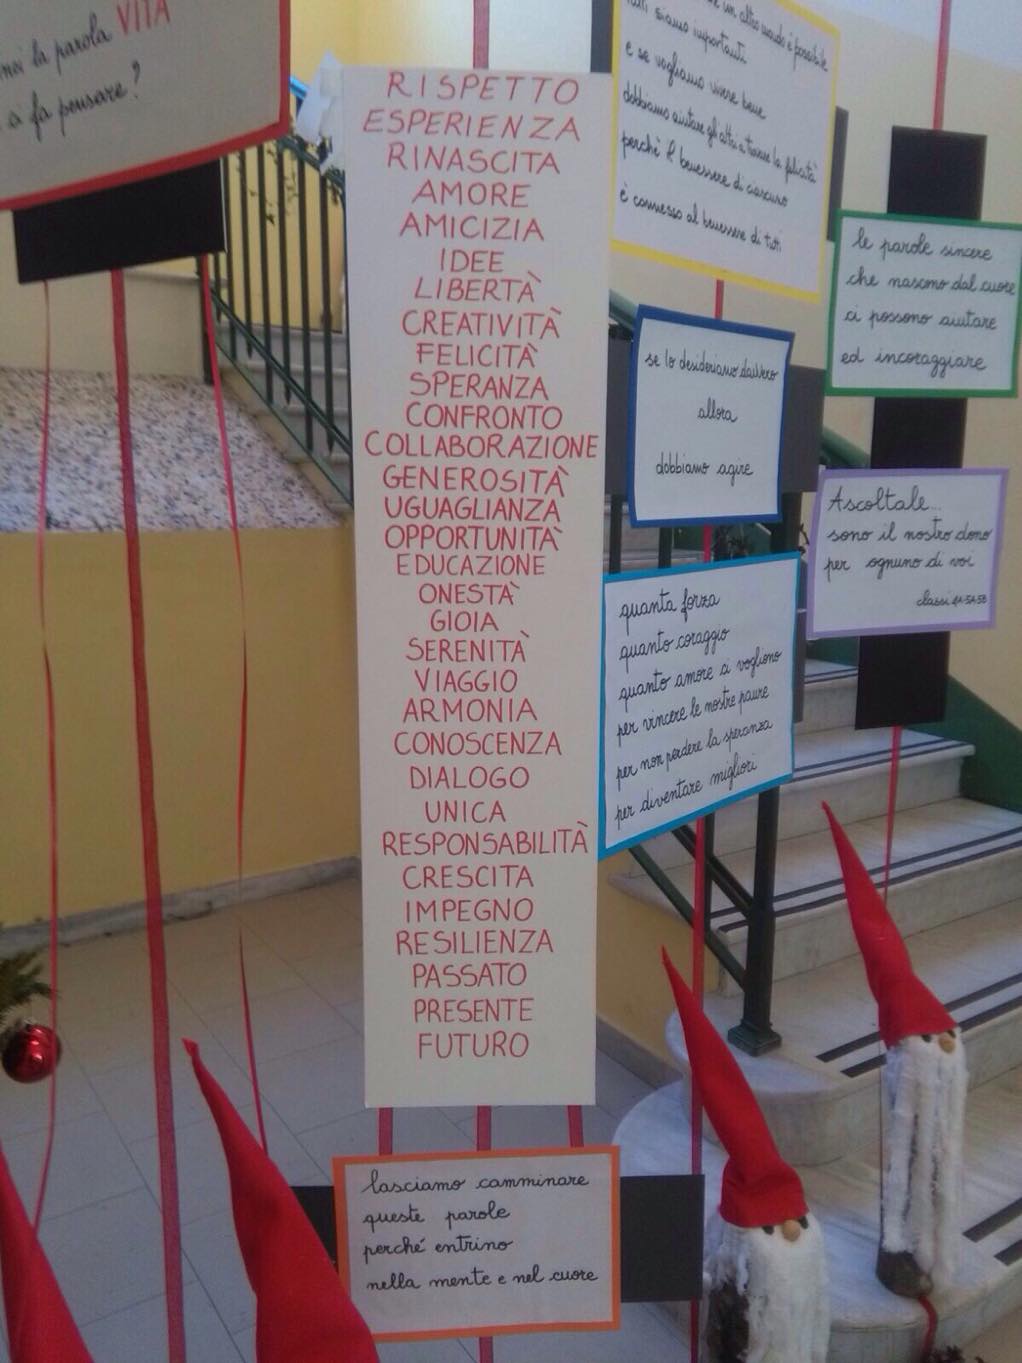 noi la parola VITA
ci fa pensare?
RISPETTO
ESPERIENZA
RINASCITA
AMORE
AMICIZIA
IDEE
LIBERTÀ
CREATIVITÀ
FELICITÀ
SPERANZA
CONFRONTO
COLLABORAZIONE
GENEROSITÀ
UGUAGLIANZA
OPPORTUNITÀ
EDUCAZIONE
ONESTÀ
GIOIA
SERENITÀ
VIAGGIO
ARMONIA
CONOSCENZA
DIALOGO
UNICA
RESPONSABILITÀ
CRESCITA
IMPEGNO
RESILIENZA
PASSATO
PRESENTE
FUTURO
lasciamo camminare
queste parole
perché entrino
nella mente e nel cuore
un altro mondo è possibile
tutti siamo importanti
e se vogliamo vivere bene
dobbiamo aiutare gli altri a trovare la felicità
perché il benessere di ciascuno
è connesso al benessere di tutti
se lo desideriamo davvero
allora
dobbiamo agire
quanta forza
quanto coraggio
quanto amore ci vogliono
per vincere le nostre paure
per non perdere la speranza
per diventare migliori
le parole sincere
che nascono dal cuore
ci possono aiutare
ed incoraggiare
Ascoltale...
sono il nostro dono
per ognuno di voi
classi 4A-5A-5B